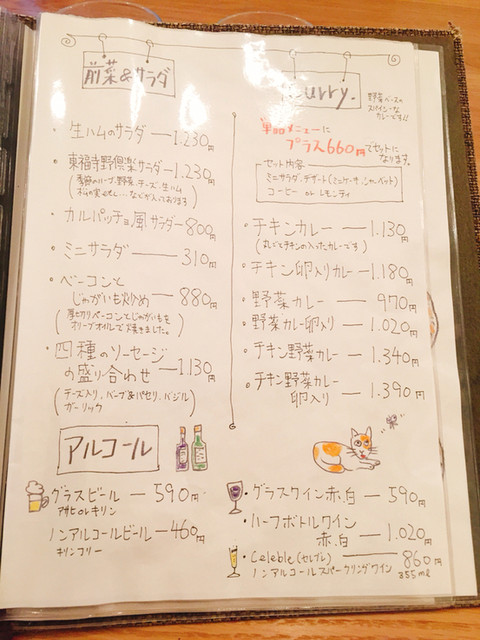 前菜&サラダ
・生ハムのサラダー 1.230円
・東福寺野倶楽サラダー 1.230円
・カルパッチョ風サラダー 800円
・ミニサラダ 310円
・ベーコンと
じゃがいも炒め 880円
(厚切りベーコンとじゃがいもを
オリーブオイルで焼きました。)
・四種のソーセージ
の盛り合わせ 1.130円
(チーズ入り、ハーブ&パセリ、バジル
ガーリック)
アルコール
グラスビール 590円
アサヒorキリン
ノンアルコールビール 460円
キリンフリー
Curry.
野菜ベースの
スパイシーな
カレーです!!
単品メニューに
プラス660円でセットに
なります。
セット内容
コーヒー or レモンティ
・チキンカレー 1.130円
(丸ごとチキンの入ったカレーです)
・チキン卵入りカレー 1.180円
・野菜カレー 970円
・野菜カレー卵入り 1.020円
・チキン野菜カレー 1.340円
・チキン野菜カレー
卵入り 1.390円
・グラスワイン赤.白 590円
・ハーフボトルワイン
赤.白 1.020円
・Celeble(セレブレ) 860円
ノンアルコールスパークリングワイン 355ml